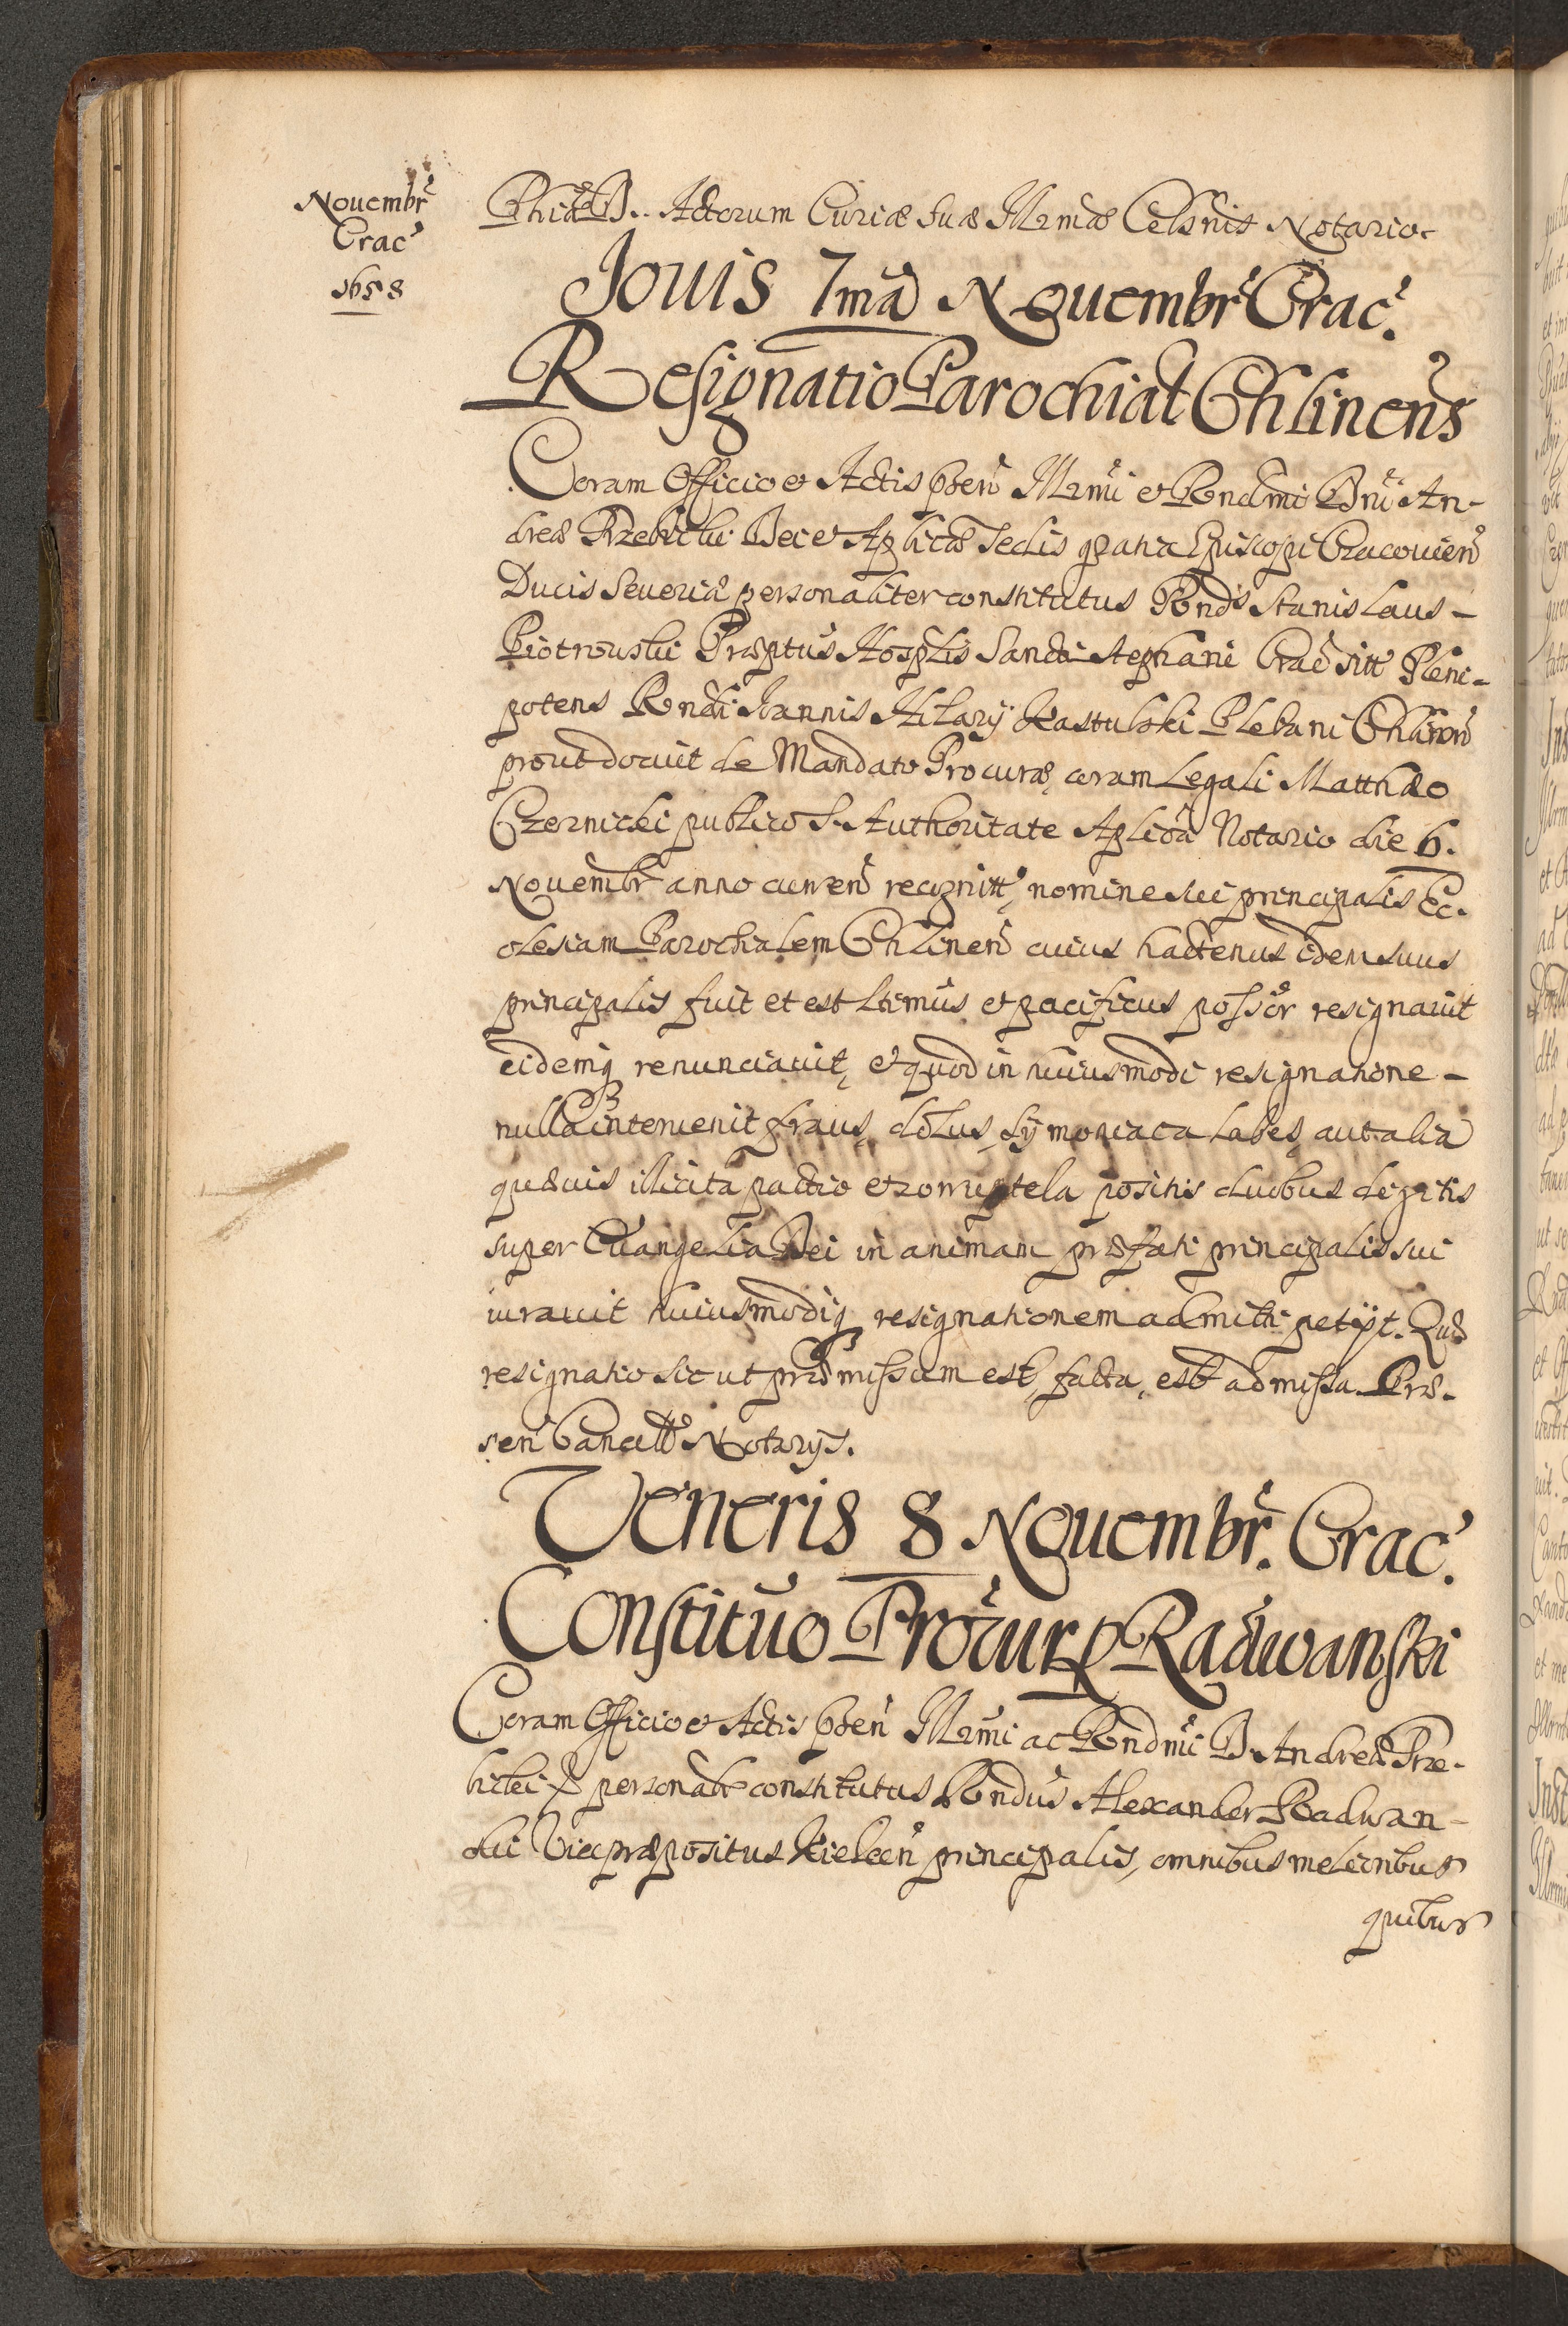 Novembr
Crac
1658
Phiæ D. Actorum Curiæ Suæ Illrmæ Celsnis Notario.
Jovis 7mã Novembr Crac.
Resignatio Parochial Chlinens
Coram Officio et Actis Illrmi et Rendmi Dni An-
dreæ Trzebicki Dei et Aplicæ Sedis gratia Episcopi Cracovien
Ducis Severiæ personaliter constitutus Rnds Stanislaus -
Piotrowski Præptus Hosplis Sancti Stephani Crac Pleni-
potens Rndi Joannis Hilarij Kastulski Plebani Chlinen
prout docuit de Mandato Procuræ, coram Legali Matthæo
Czernicki publico S. Authoritate Aplica Notario die 6.
Novembr anno curren recognitt, nomine sui principalis Ec-
clesiam Parochialem Chlinen cuius hactenus idem suus
principalis fuit et est ltimus et pacificus possor resignavit
eidemq renunciavit, et quod in huiusmodi resignatione -
nulla intervenit fraus, dolus, symoniaca labes, aut alia
quævis illicita pactio et corruptela positis duobus degitis
super Evangelia Dei in animam præfati principalis sui
iuravit huiusmodiq resignationem admitti petijt. Quæ
resignatio sic ut præmissum est, facta, est admissa. Præ-
sen Cancell Notarijs.
Veneris 8 Novembr. Crac.
Constituo Procur p Radwanski
Coram Officio et Actis Illrmi ac Rendmi D. Andreæ Trze-
bicki personalr constitutus Rndus Alexander Radwan-
ski Vicepræpositus Kielcen principalis, omnibus melioribus
quibus